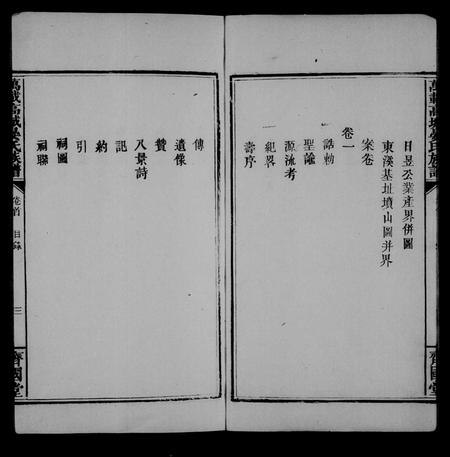 日昱公業產界併圖
東溪基址墳山圖并界
案卷
卷一
誥勅
聖諭
源流考
紀畧
壽序
齊國堂
傳
遺像
贊
八景詩
記
約
引
祠圖
祠聯
萬載高城
氏族譜
卷首
目錄
三
齊國堂